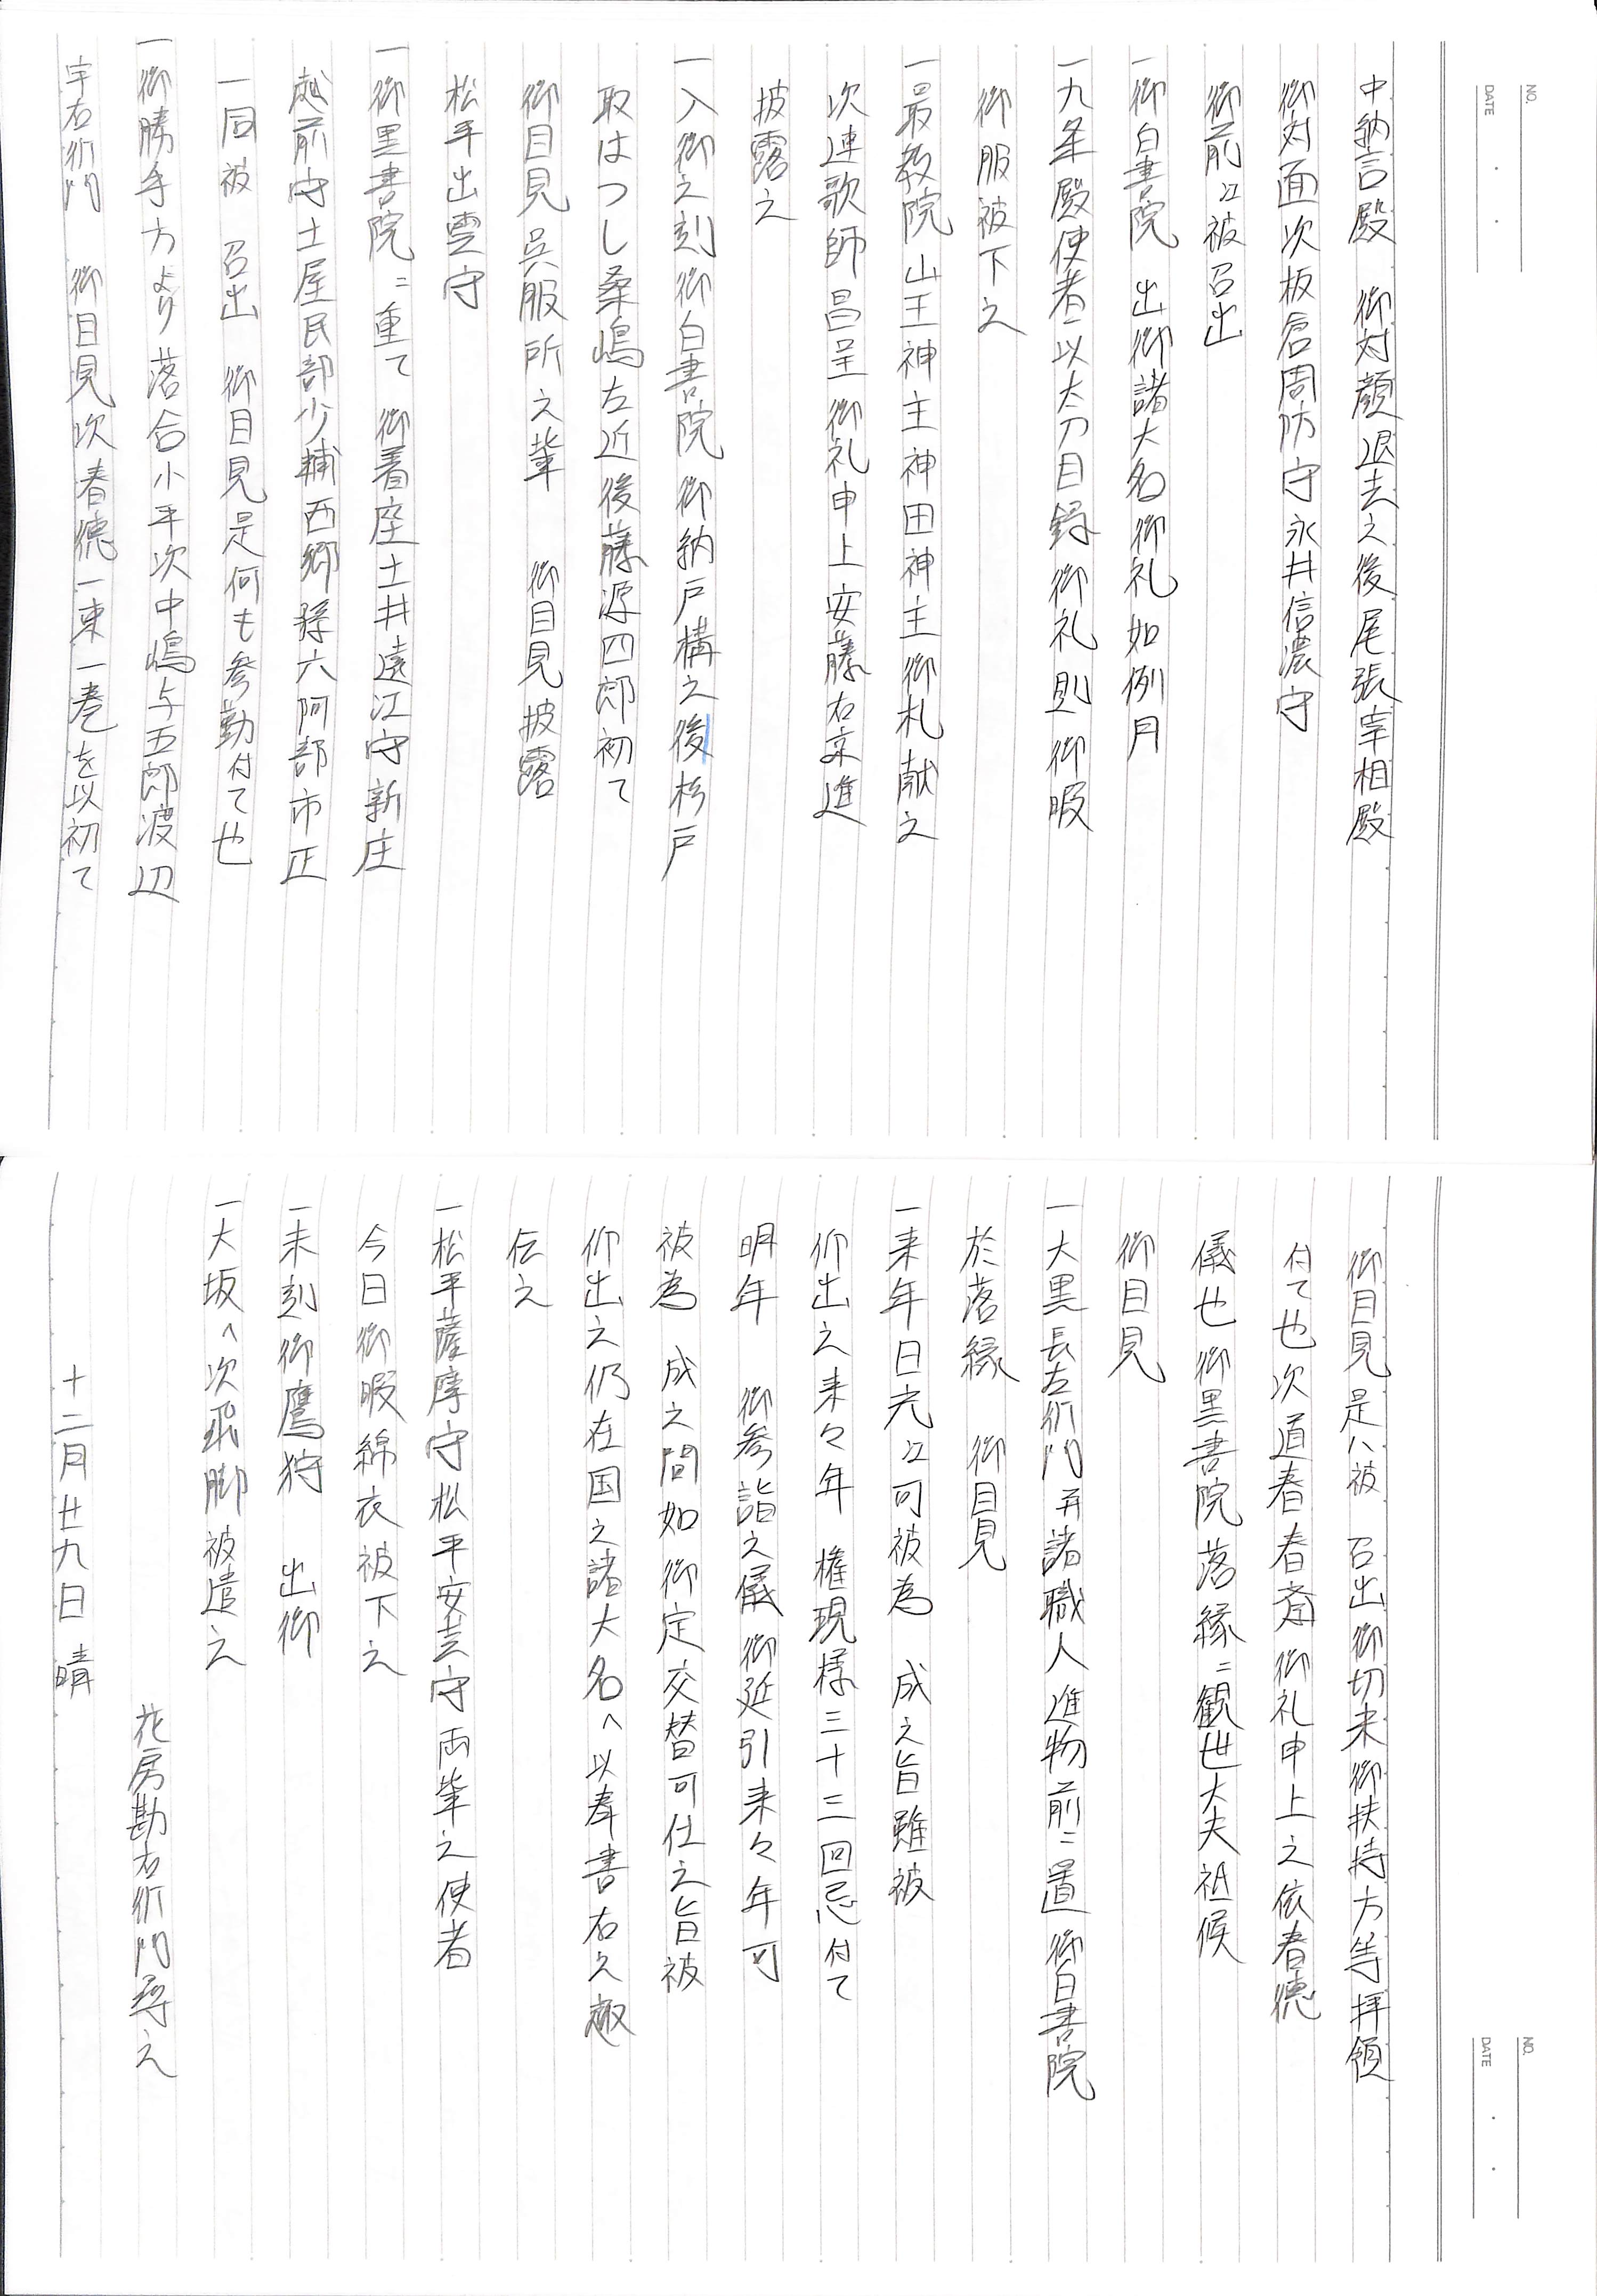 NO.
DATE
中納言殿　御対顔退去之後尾張宰相殿
御対面次板倉周防守永井信濃守
御前江被召出
一御白書院　出御諸大名御礼如例月
一九条殿使者以太刀目録御礼則御暇
御服被下之
一最教院山王神主神田神主御札献之
次連歌師昌呈御礼申上安藤右京進
披露之
一入御之刻御白書院御納戸構之後杉戸
取はつし桑嶋左近後藤源四郎初て
御目見呉服所之輩　御目見披露
松平出雲守
一御黒書院ニ重て　御着座土井遠江守新庄
越前守土屋民部少輔西郷孫六阿部市正
一同被　召出　御目見是何も参勤付て也
一御勝手方より落合小平次中嶋与五郎渡辺
宇右衛門　御目見次春徳一束一巻を以初て
NO.
DATE
御目見是八被　召出御切米御扶持方等拝領
付て也次道春春斎御礼申上之依春徳
儀也御黒書院落縁ニ観世大夫祗候
御目見
一大黒長左衛門并諸職人進物前ニ置御白書院
於落縁　御目見
一来年日光江可被為　成之旨雖被
仰出之来々年　権現様三十三回忌付て
明年　御参詣之儀御延引来々年可
被為　成之間如御定交替可仕之旨被
仰出之仍在国之諸大名へ以奉書右之趣
伝之
一松平薩摩守松平安芸守両輩之使者
今日御暇綿衣被下之
一未刻御鷹狩　出御
一大坂へ次飛脚被遣之
花房勘右衛門承之
十二月廿九日　晴